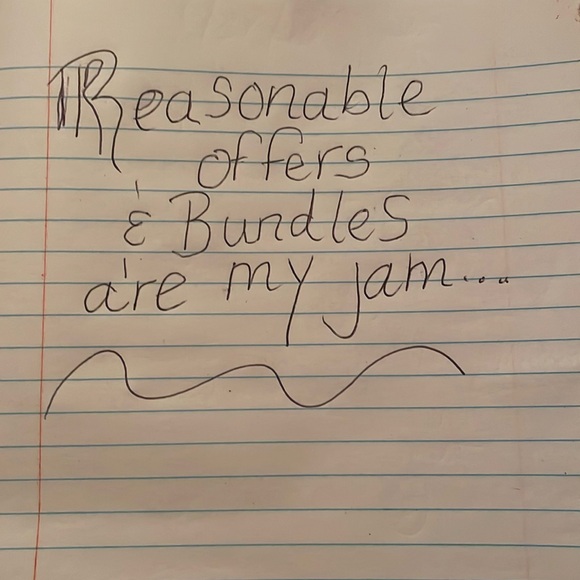 Reasonable
offers
& Bundles
are my jam...